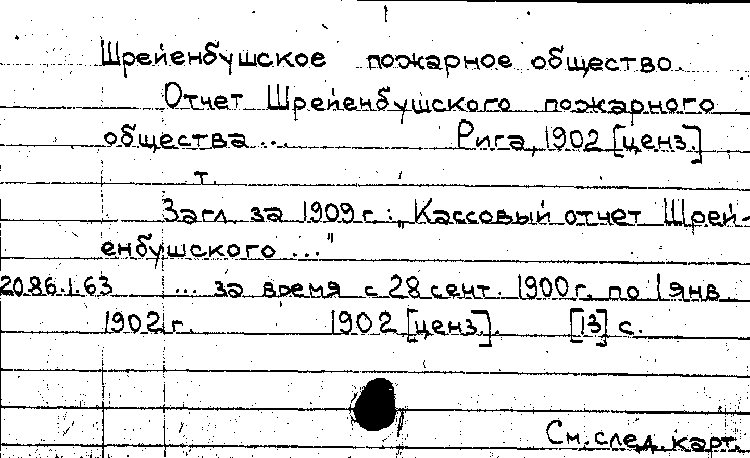 Шрейенбушское пожарное общество.
Отчет Шрейенбушского пожарного
общества ... Рига, 1902 [ценз.]
т.
Загл. за 1909 г.: „Кассовый отчет Шрей-
енбушского ..."
2086.1.63 ... за время с 28 сент. 1900 г. по 1 янв.
1902 г. 1902 [ценз.]. [13] с.
См. след. карт.